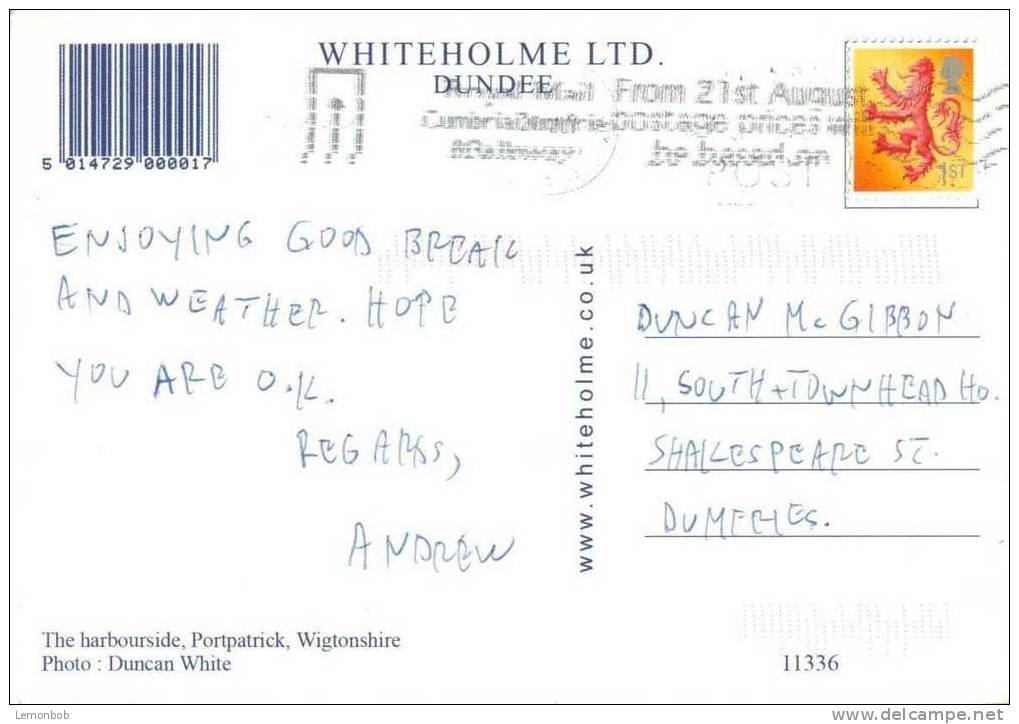 WHITEHOLME LTD.
DUNDEE
5 014729 000017
Royal Mail From 21st August
Cumbria Dumfries postage prices will
& Galloway be based on
POST
1ST
ENJOYING GOOD BREAK
AND WEATHER. HOPE
YOU ARE O.K.
REGARDS,
ANDREW
www.whiteholme.co.uk
DUNCAN Mc GIBBON
11, SOUTH + TOWNHEAD HO.
SHAKESPEARE ST.
DUMFRIES.
The harbourside, Portpatrick, Wigtonshire
Photo : Duncan White
11336
Lemonbob
www.delcampe.net